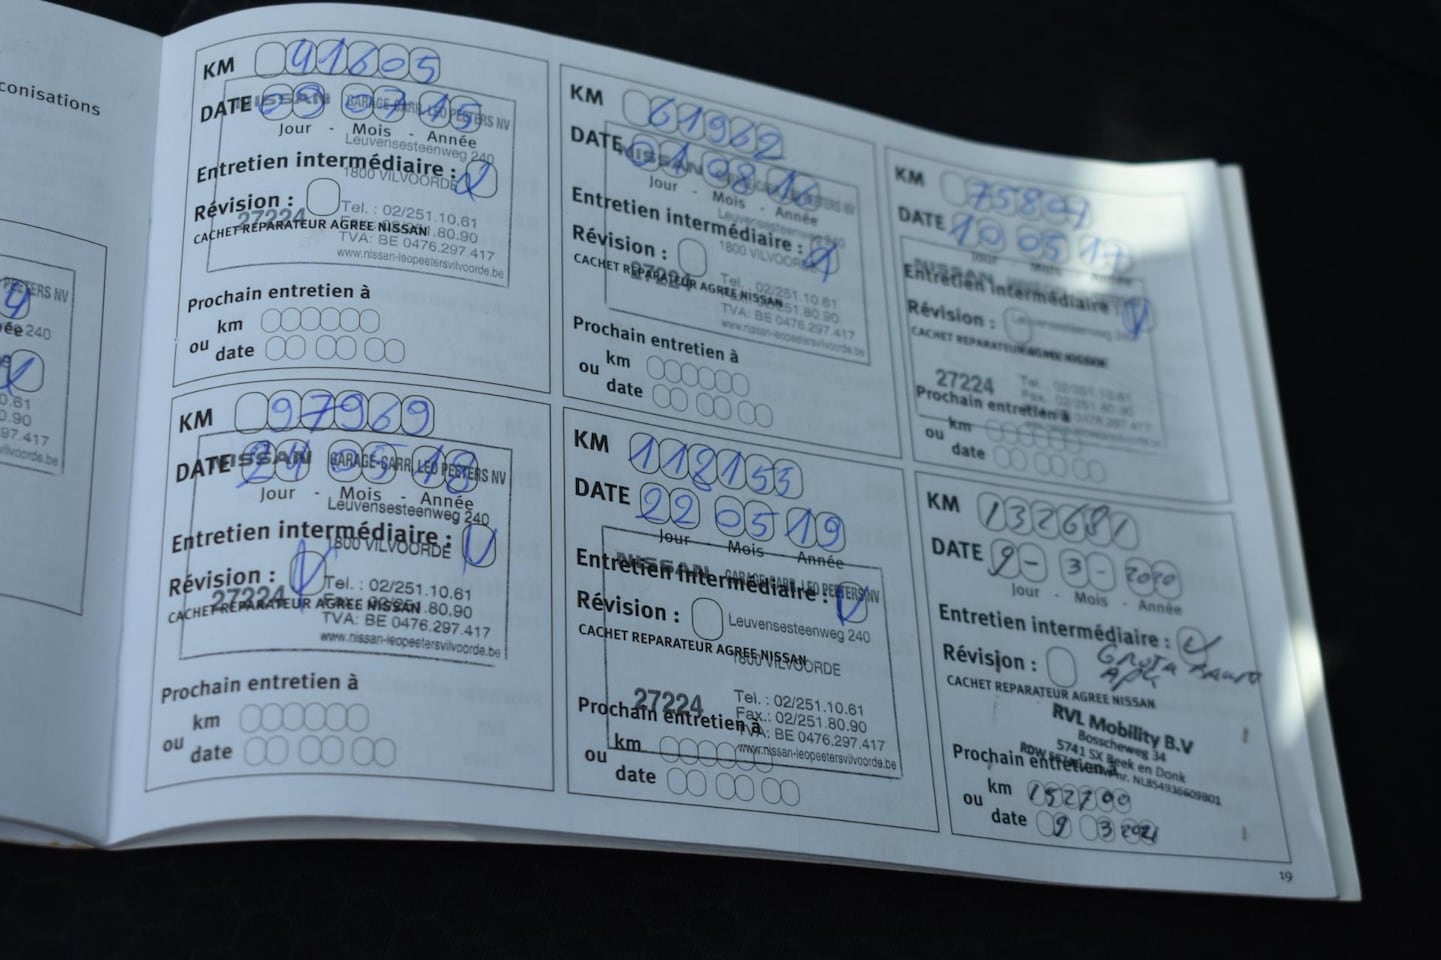 conisations
PEETERS NV
240
97.417
vilvoorde.be
KM 41605
DATE 09 07 15
NISSAN GARAGE-CARR. LEO PEETERS NV
Jour - Mois - Année
Leuvensesteenweg 240
Entretien intermédiaire :
1800 VILVOORDE
Révision :
27224
Tel. : 02/251.10.61
CACHET REPARATEUR AGREE NISSAN
Fax.: 02/251.80.90
TVA: BE 0476.297.417
www.nissan-leopeetersvilvoorde.be
Prochain entretien à
km
ou
date
KM 61962
DATE 01 08 16
NISSAN GARAGE-CARR. LEO PEETERS NV
Jour - Mois - Année
Leuvensesteenweg 240
Entretien intermédiaire :
1800 VILVOORDE
Révision :
27224
CACHET REPARATEUR AGREE NISSAN
Tel. : 02/251.10.61
Fax.: 02/251.80.90
TVA: BE 0476.297.417
www.nissan-leopeetersvilvoorde.be
Prochain entretien à
km
ou
date
KM 75801
DATE 10 05 17
Jour - Mois - Année
NISSAN
Entretien intermédiaire :
Révision :
Leuvensesteenweg 240
CACHET REPARATEUR AGREE NISSAN
27224
Tel. : 02/251.10.61
Fax.: 02/251.80.90
Prochain entretien à
km
ou
date
KM 97969
DATE 24 05 18
NISSAN GARAGE-CARR. LEO PEETERS NV
Jour - Mois - Année
Leuvensesteenweg 240
Entretien intermédiaire :
1800 VILVOORDE
Révision :
27224
Tel. : 02/251.10.61
CACHET REPARATEUR AGREE NISSAN
Fax.: 02/251.80.90
TVA: BE 0476.297.417
www.nissan-leopeetersvilvoorde.be
Prochain entretien à
km
ou
date
KM 118153
DATE 22 05 19
Jour - Mois - Année
NISSAN GARAGE-CARR. LEO PEETERS NV
Entretien intermédiaire :
Révision :
Leuvensesteenweg 240
CACHET REPARATEUR AGREE NISSAN
1800 VILVOORDE
27224
Tel. : 02/251.10.61
Fax.: 02/251.80.90
TVA: BE 0476.297.417
www.nissan-leopeetersvilvoorde.be
Prochain entretien à
km
ou
date
KM 132681
DATE 9 - 3 - 2020
Jour - Mois - Année
Entretien intermédiaire :
Révision :
APK
CACHET REPARATEUR AGREE NISSAN
RVL Mobility B.V
Bosscheweg 34
5741 SX Beek en Donk
nr. NL854936609B01
Prochain entretien à
km 152700
ou
date 9 3 2021
19